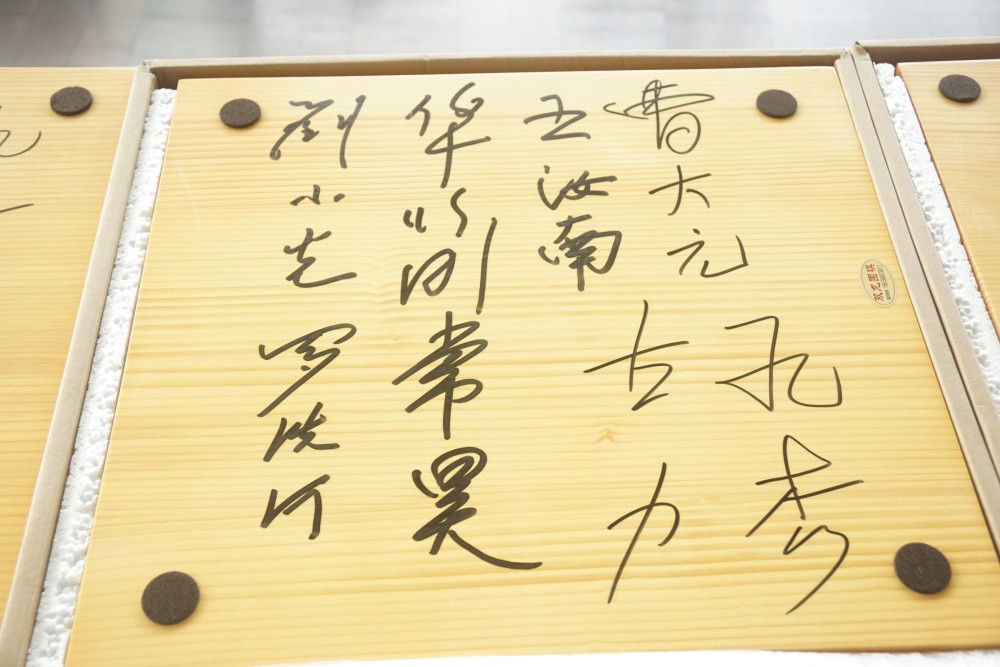 曹大元
王汝南
华以刚
劉小光
孔杰
古力
常昊
罗洗河